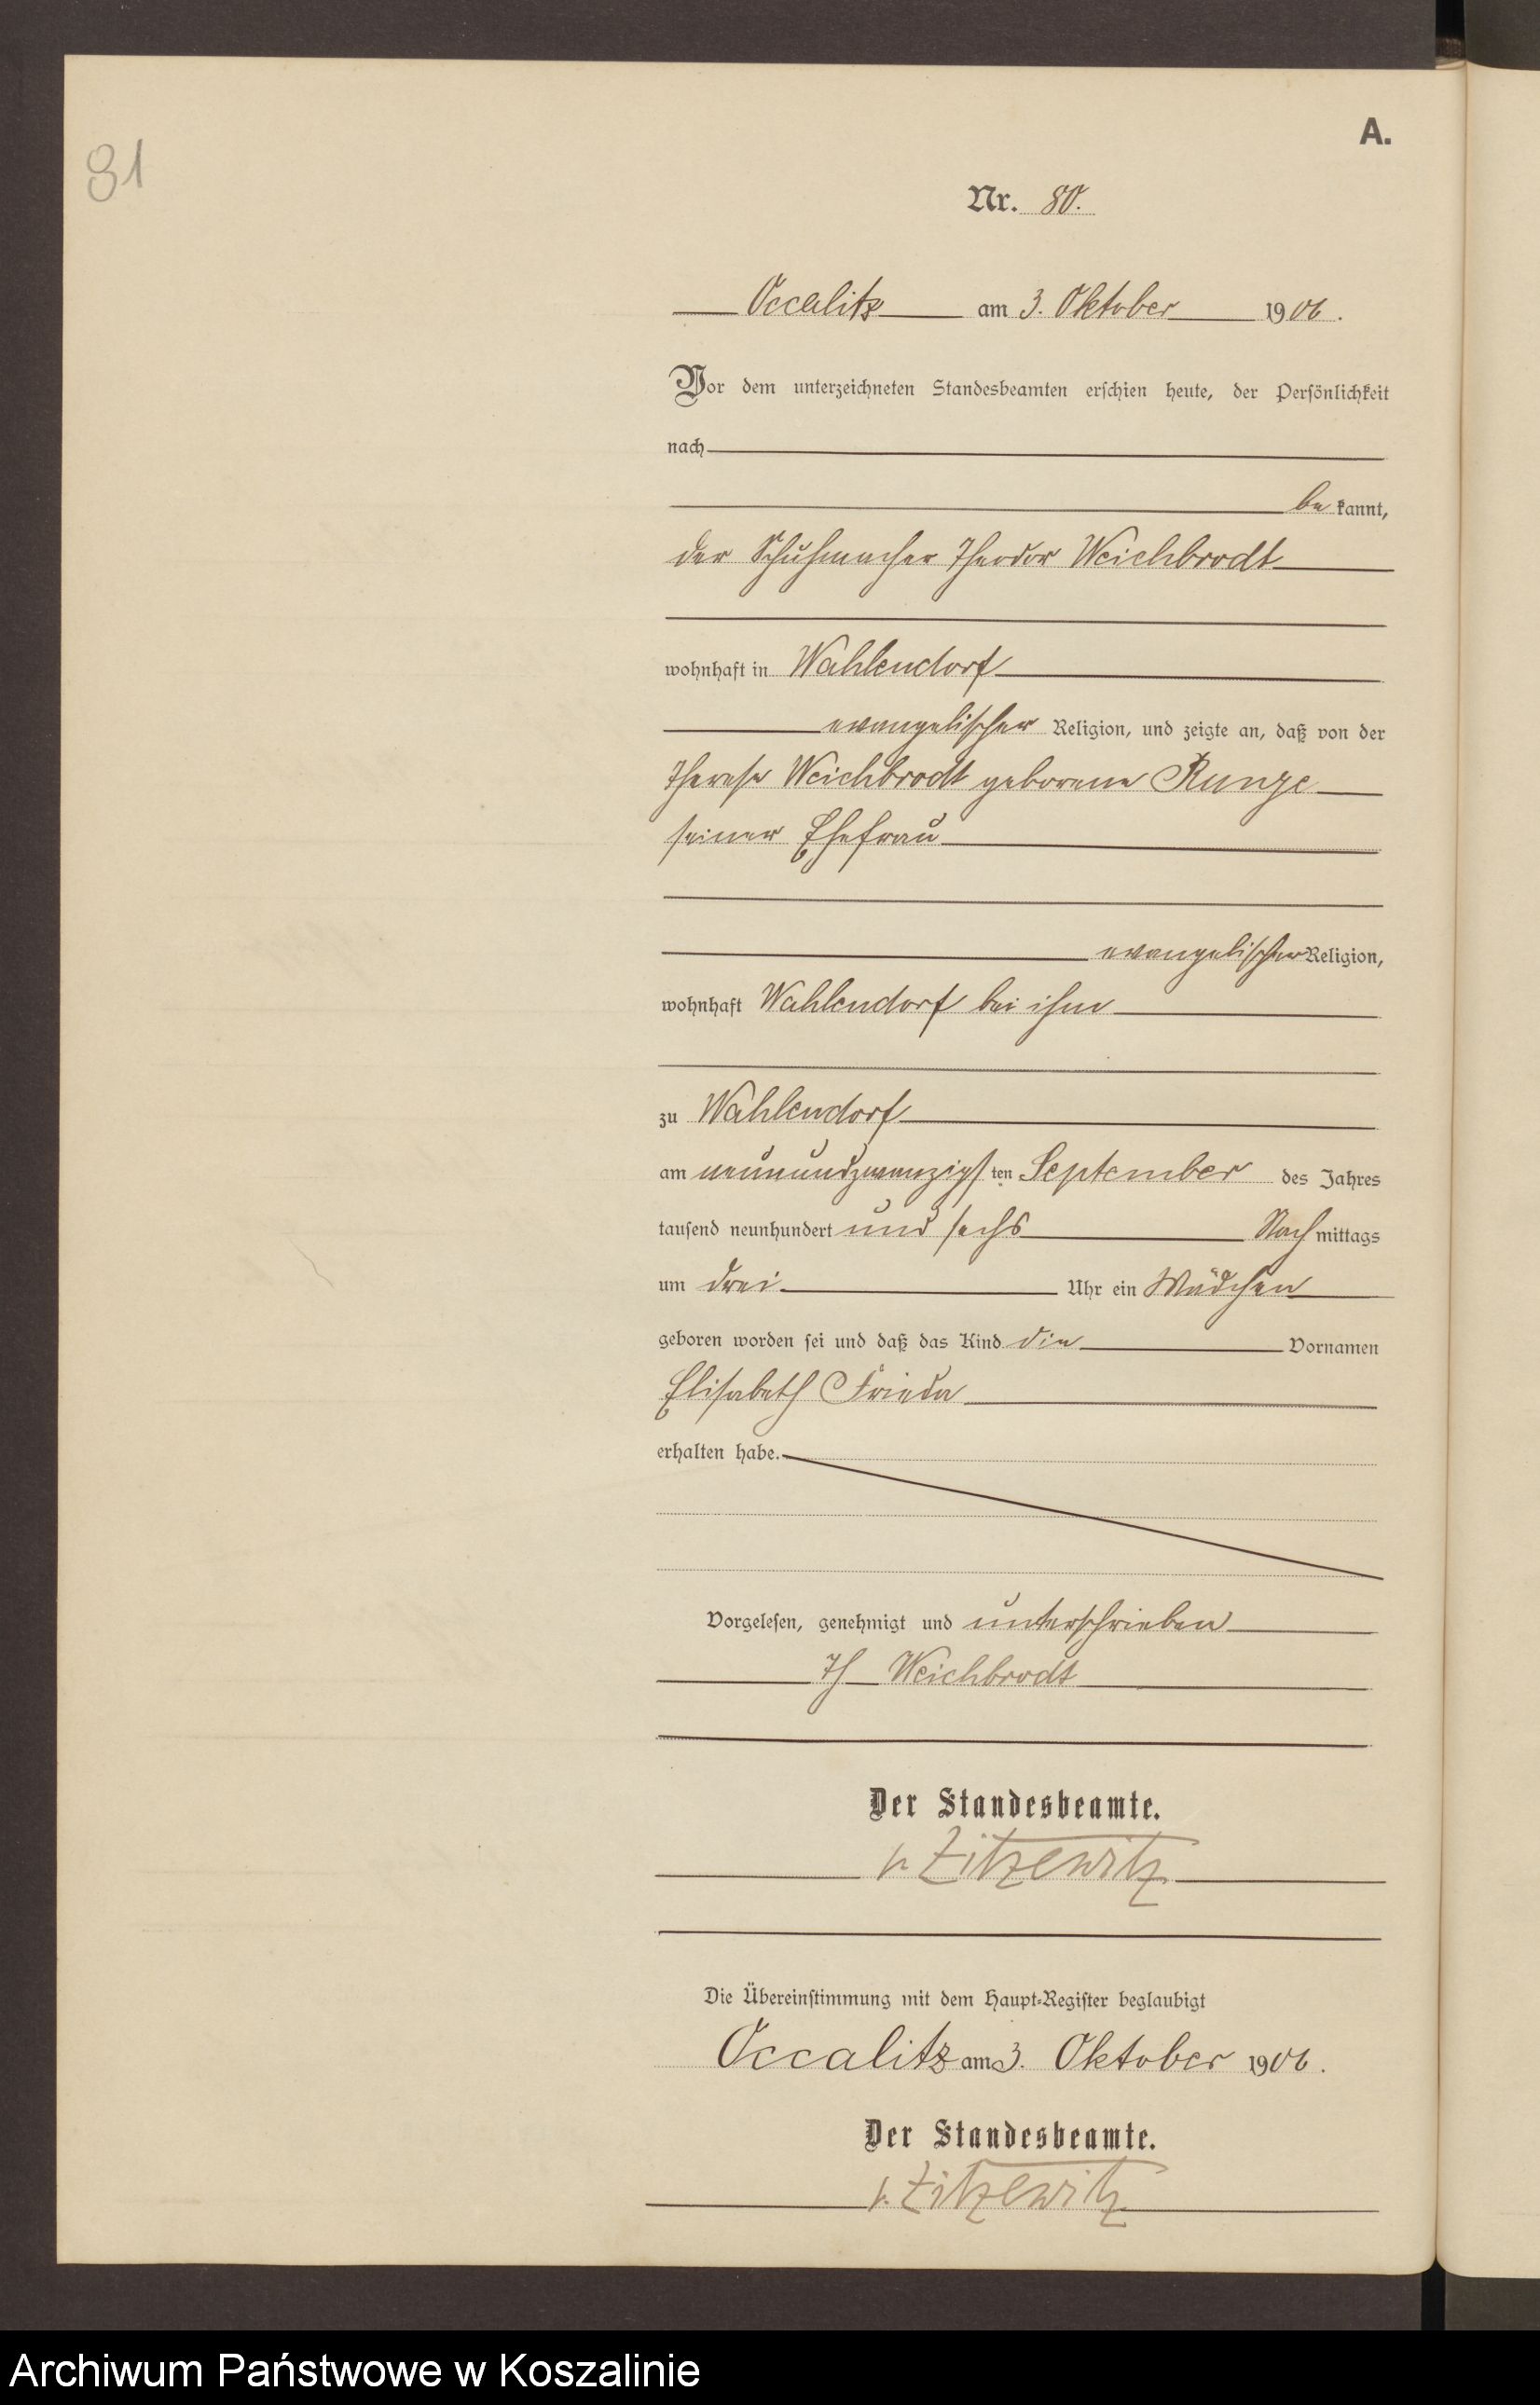 81
A.
Nr. 80.
Occalitz am 3. Oktober 1906.
Vor dem unterzeichneten Standesbeamten erschien heute, der Persönlichkeit
nach
be kannt,
der Schuhmacher Theodor Weichbrodt
wohnhaft in Wahlendorf
evangelischer Religion, und zeigte an, daß von der
Therese Weichbrodt geborene Runge
seiner Ehefrau
evangelischer Religion,
wohnhaft Wahlendorf bei ihm
zu Wahlendorf
am neunundzwanzigsten September des Jahres
tausend neunhundert und sechs Nachmittags
um drei Uhr ein Mädchen
geboren worden sei und daß das Kind die Vornamen
Elisabeth Frieda
erhalten habe.
Vorgelesen, genehmigt und unterschrieben
Th Weichbrodt
Der Standesbeamte.
v. Zitzewitz
Die Übereinstimmung mit dem Haupt-Register beglaubigt
Occalitz am 3. Oktober 1906.
Der Standesbeamte.
v. Zitzewitz
Archiwum Państwowe w Koszalinie